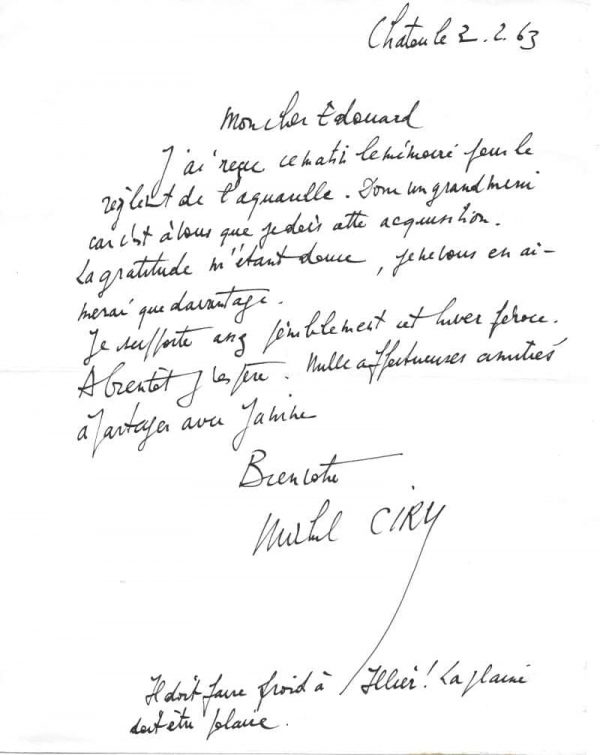 Chatou le 2.2.63
Mon cher Edouard
J'ai reçu ce matin le mémoire pour le
règlement de l'aquarelle. Donc un grand merci
car c'est à vous que je dois cette acquisition.
La gratitude m'étant douce, je ne vous en ai-
merai que davantage.
Je supporte assez péniblement cet hiver féroce.
A bientôt j'espère. Mille affectueuses amitiés
à partager avec Janine
Bien votre
Michel CIRY
Il doit faire froid à Illier! La plaine
doit être